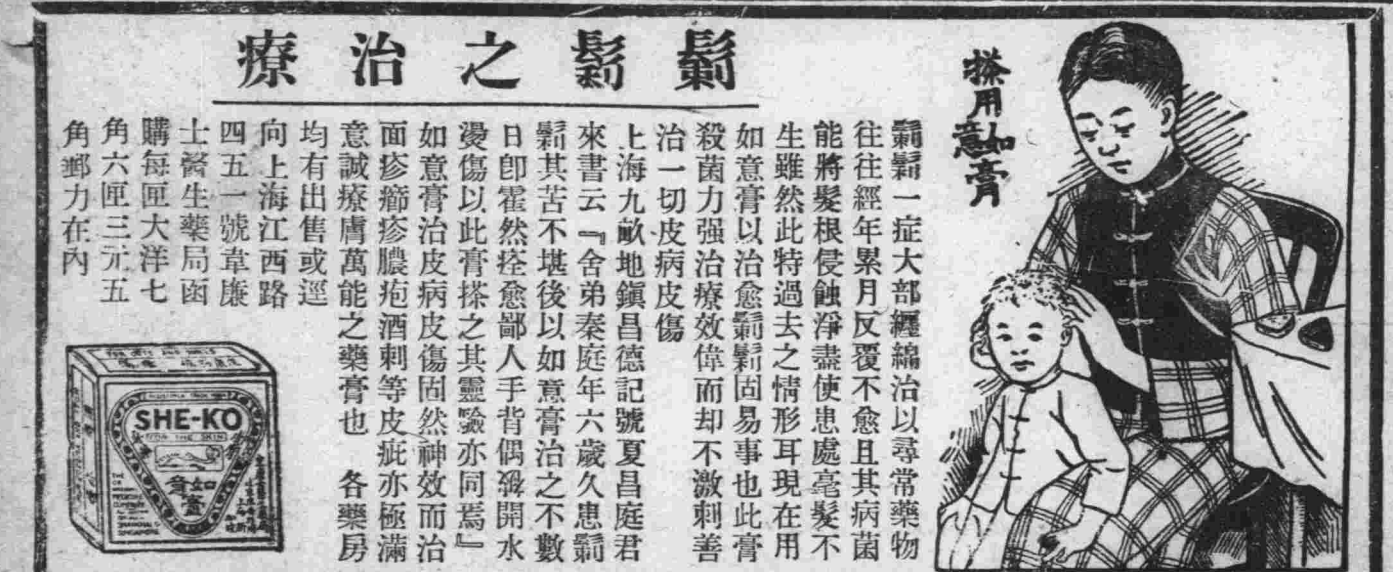 鬎鬁之治療
搽用如意膏
鬎鬁一症大部纒綿治以尋常藥物
往往經年累月反覆不愈且其病菌
能將髮根侵蝕淨盡使患處毫髮不
生雖然此特過去之情形耳現在用
如意膏以治愈鬎鬁固易事也此膏
殺菌力强治療效偉而却不激刺善
治一切皮病皮傷
上海九畝地鎭昌德記號夏昌庭君
來書云『舍弟秦庭年六歲久患鬎
鬁其苦不堪後以如意膏治之不數
日卽霍然痊愈鄙人手背偶被開水
燙傷以此膏搽之其靈驗亦同焉』
如意膏治皮病皮傷固然神效而治
面疹癤疹膿疱酒刺等皮疵亦極滿
意誠療膚萬能之藥膏也 各藥房
均有出售或逕
向上海江西路
四五一號韋廉
士醫生藥局函
購每匣大洋七
角六匣三元五
角郵力在內
SHE-KO
FOR THE SKIN
如意膏